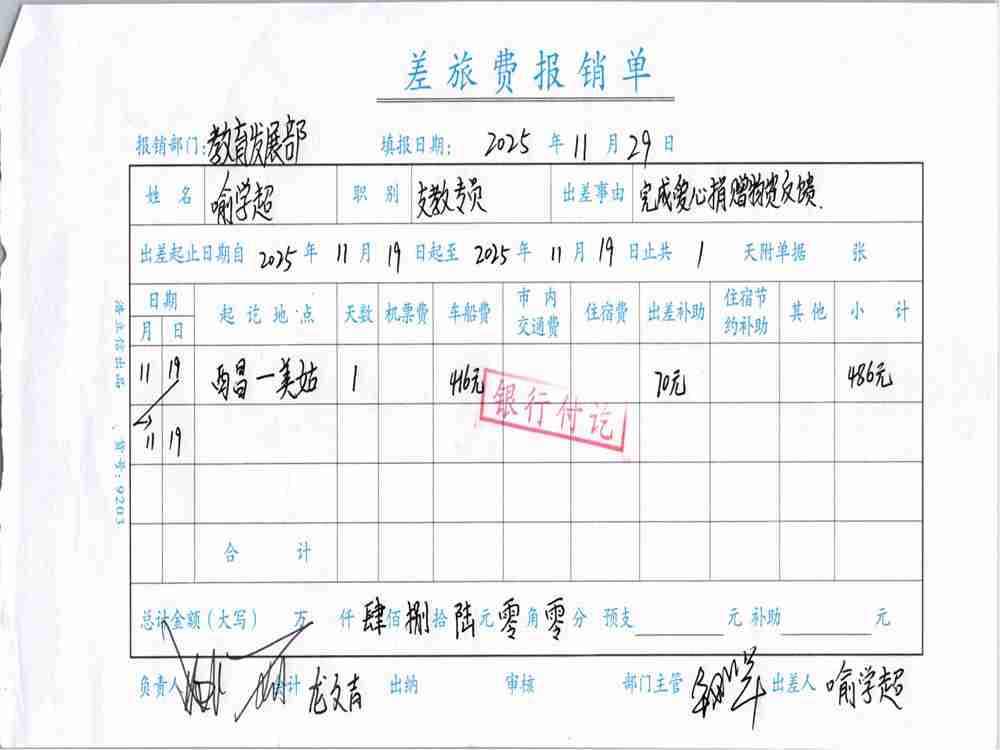 差旅费报销单
报销部门: 教育发展部 填报日期: 2025 年 11 月 29 日
姓 名 喻学超 职 别 支教专员 出差事由 完成爱心捐赠物资反馈.
出差起止日期自 2025 年 11 月 19 日起至 2025 年 11 月 19 日止共 1 天附单据 张
日期 起讫地点 天数 机票费 车船费 市内交通费 住宿费 出差补助 住宿节约补助 其他 小计
月 日
11 19 西昌—美姑 1 416元 70元 486元
银行付讫
11 19
合 计
总计金额(大写) 万 仟 肆 佰 捌 拾 陆 元 零 角 零 分 预支 元 补助 元
负责人 会计 龙文青 出纳 审核 部门主管 出差人 喻学超
货号: 9203